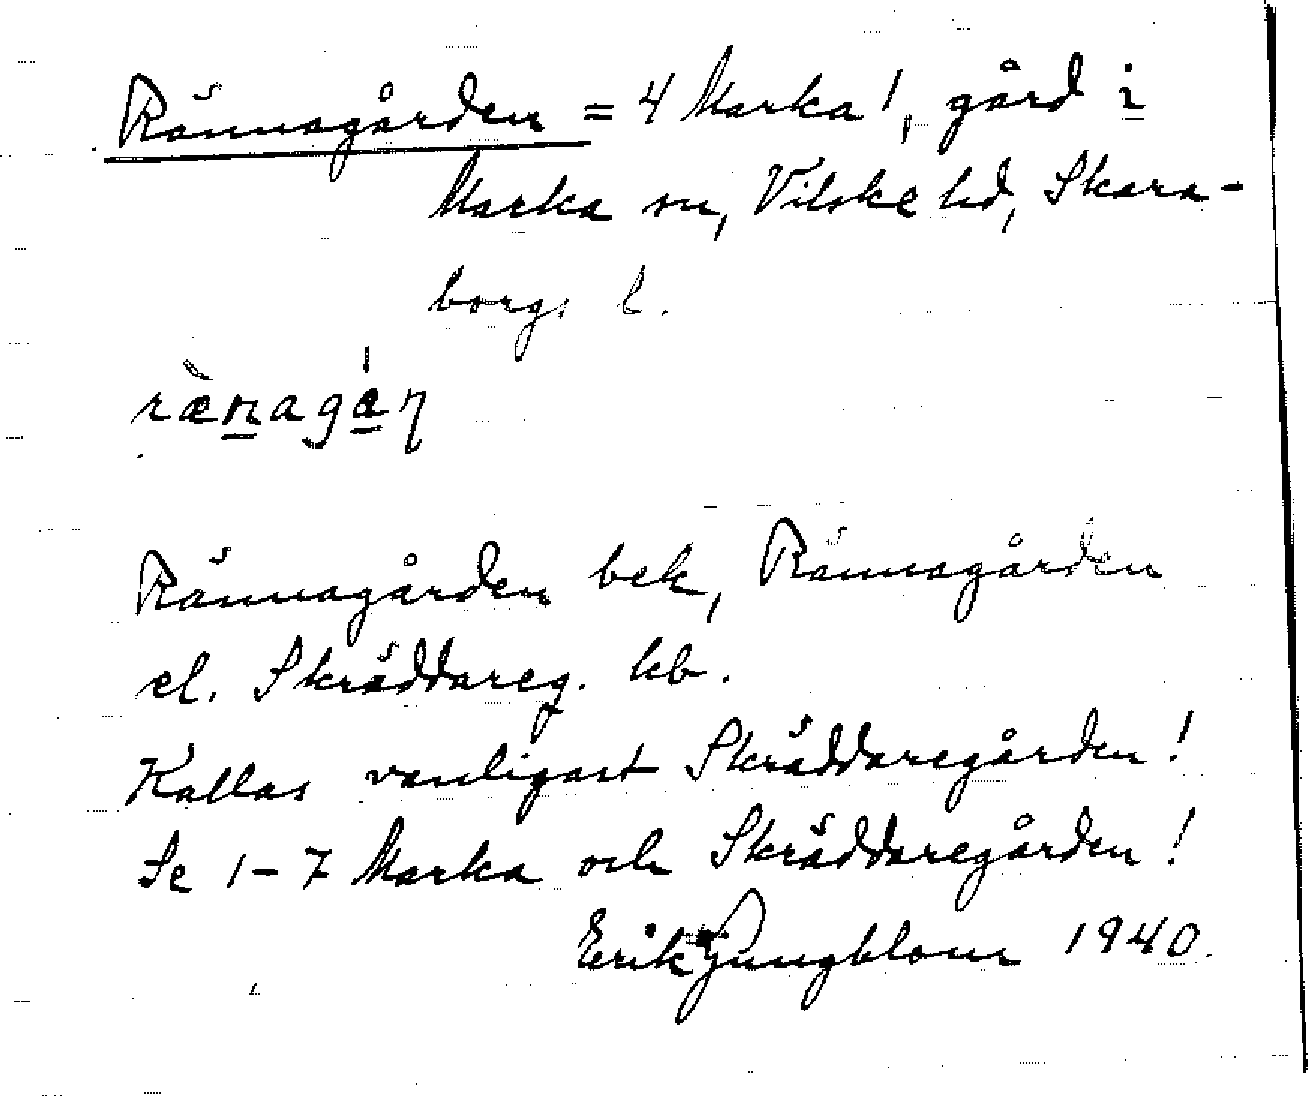 Rännagården = 4 Marka!, gård i
Marka sn, Vilske hd, Skara-
borgs l.
rænagán
Rännagården bek, Rännagården
el. Skräddareg. kb.
Kallas vanligast Skräddaregården!
Se 1-7 Marka och Skräddaregården!
Erik Ljungblom 1940.